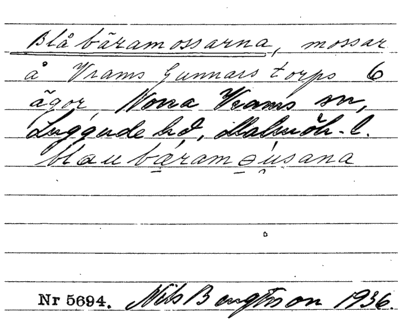 Blåbäramossarna, mossar
å Vrams Gunnarstorps 6
ägor, Norra Vrams sn,
Luggude hd, Malmöh. l.
blaubäramosusana
Nr 5694. Nils Bengtsson 1936.